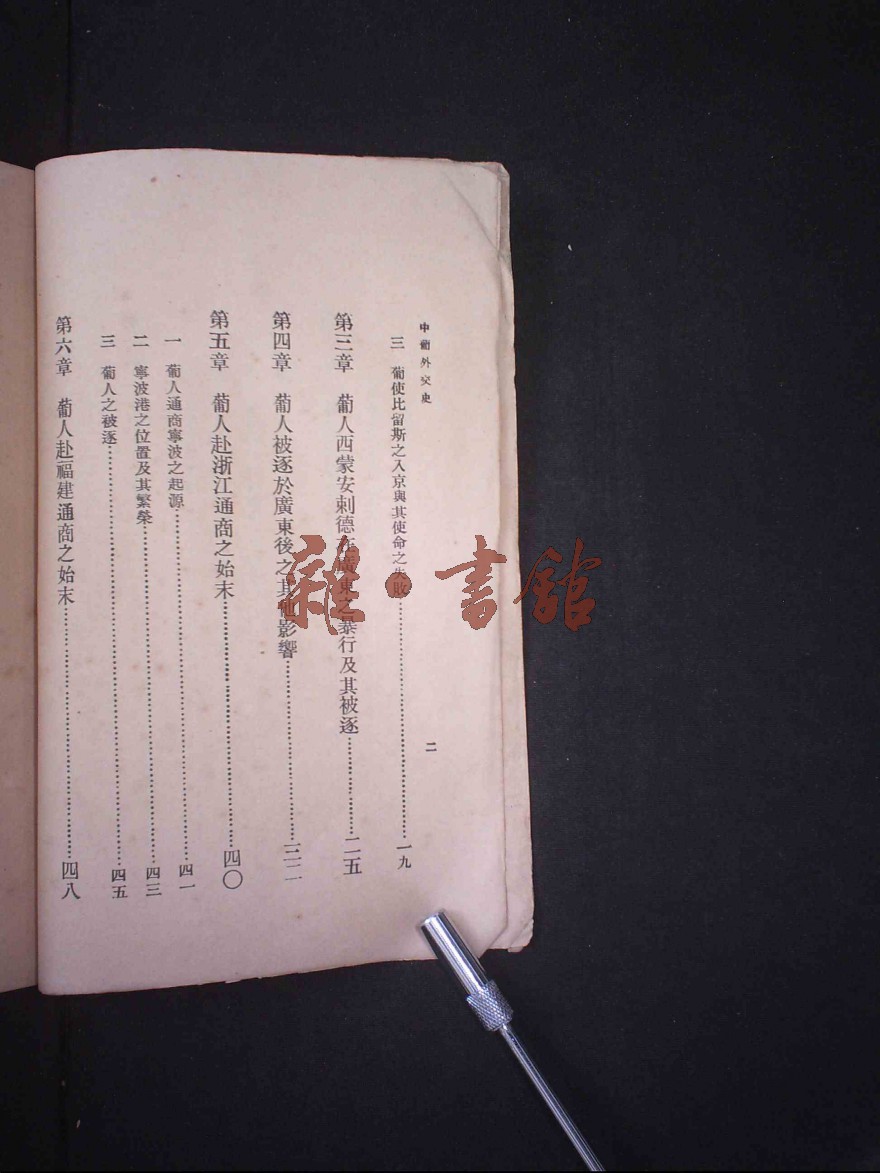 中葡外交史
二
三 葡使比留斯之入京與其使命之失敗……一九
第三章 葡人西蒙安剌德在廣東之暴行及其被逐……二五
第四章 葡人被逐於廣東後之其他影響……三二
第五章 葡人赴浙江通商之始末……四〇
一 葡人通商寧波之起源……四一
二 寧波港之位置及其繁榮……四三
三 葡人之被逐……四五
第六章 葡人赴福建通商之始末……四八
雜·書館